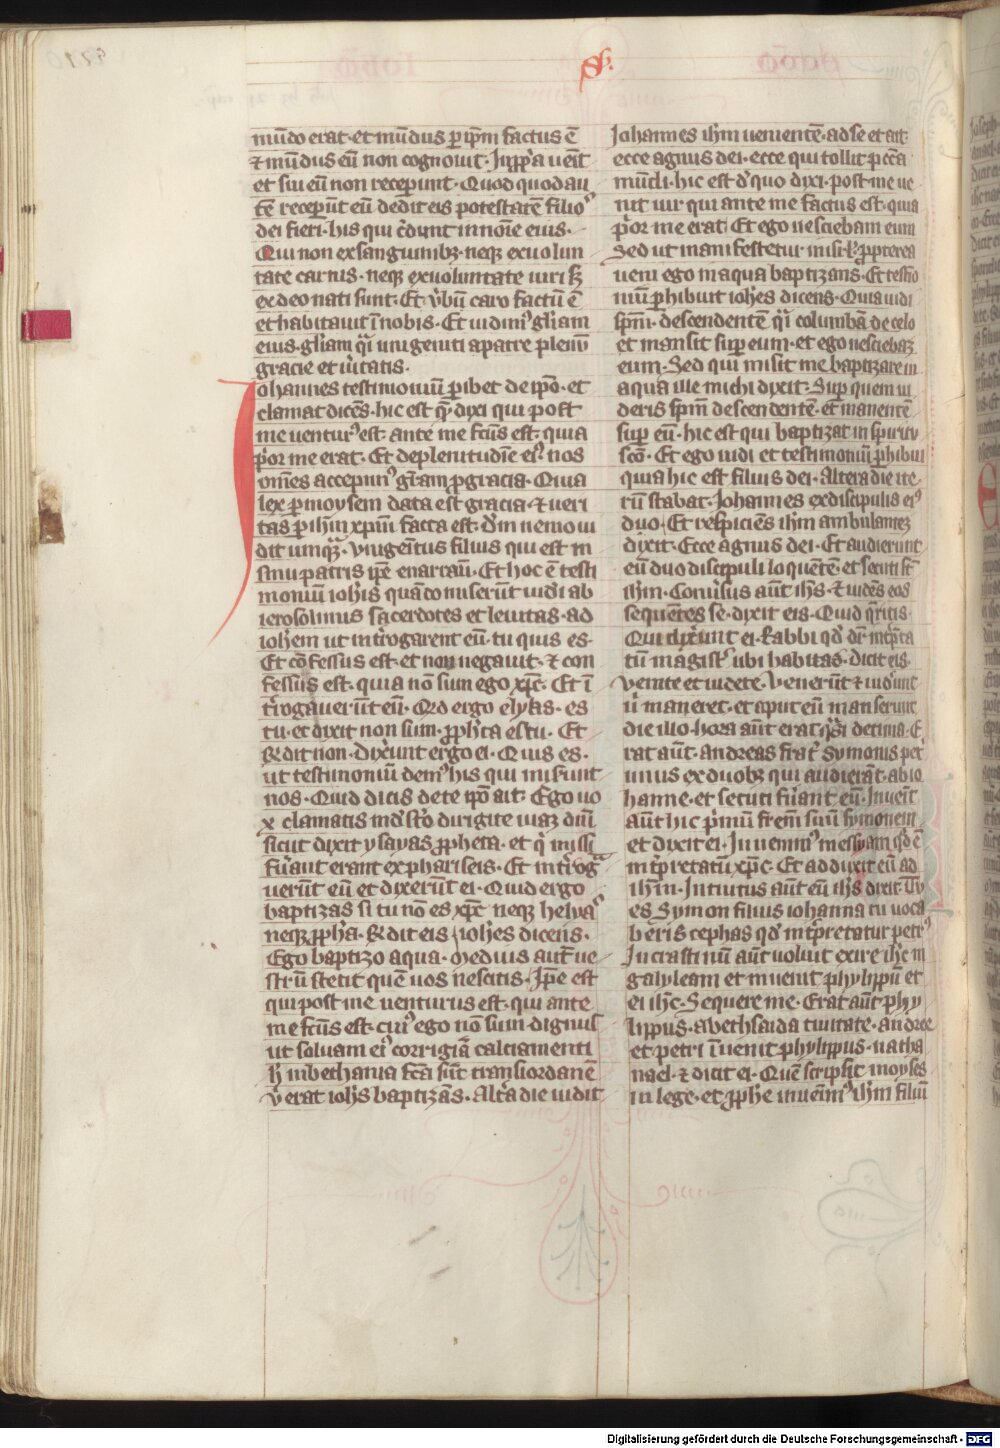 S.
mūdo erat · et mūdus p ip̄m factus ē
⁊ mūdus eū non cognouit · In ꝓp̄a ueīt
et sui eū non receperunt · Quod quod au
tē recepūt eū dedit eis potestatē filioꝰ
dei fieri · his qui c̄dunt in noīe eius ·
Qui non ex sanguinibꝫ · neqꝫ ex uolun
tate carnis · neqꝫ ex uoluntate uiri sꝫ
ex deo nati sunt · Et v̄bū caro factū ē
et habitauit ī nobis · Et uidimꝰ gl̄iam
eius · gl̄iam q̄i unigeniti a patre plenū
gracie et ūitatis ·
Iohannes testimoniū ꝑibet de ip̄o · et
clamat dicēs · hic est q̄ dixi qui post
me uenturꝰ est · ante me fc̄us est · quia
p̄or me erat · Et de plenitudīe eiꝰ nos
om̄es accepimꝰ gr̄am ꝓ gracia · Quia
lex ꝑ moysem data est gracia · ⁊ ueri
tas ꝑ ih̄m xp̄m facta est · d̄m nemo ui
dit umqꝫ · Vnigenitus filius qui est in
sinu patris ip̄e enarrauit · Et hoc ē testi
moniū ioh̄is quādo miserūt iudi ab
ierosolimis sacerdotes et leuitas · ad
ioh̄em ut int̄rogarent eū · tu quis es ·
Et cōfessus est · et non negauit · ⁊ con
fessus est · quia nō sum ego xp̄c · Et ī
t̄rogauerūt eū · Qd ergo elyas · es
tu · et dixit non sum · ꝓph̄ta es tu · Et
r̄ndit non · Dix̄unt ergo ei · Quis es ·
ut testimoniū demꝰ his qui mis̄unt
nos · Quid dicis de te ip̄o ait · Ego uo
x clamatis in d̄sto dirigite uiaꝫ dn̄i
sicut dixit ysayas ꝓpheta · et q̄ missi
fūant erant ex phariseis · Et int̄rog
uerūt eū et dixerūt ei · Quid ergo
baptizas si tu nō es xp̄c neqꝫ helyaˢ
neqꝫ ꝓph̄a · R̄ndit eis ioh̄es dicens ·
Ego baptizo aqua · Medius aut̄ ue
strū stetit quē uos nescitis · Ip̄e est
qui post me uenturus est · qui ante
me fc̄us est · cuiꝰ ego nō sum dignus
ut soluam eiꝰ corrigiā calciamenti
h̄ in bethania fc̄a sūt trans iordanē
v̄ erat ioh̄es baptizās · Alt̄a die uidit
Iohannes ih̄m uenientē · ad se et ait
ecce agnus dei · ecce qui tollit pcc̄a
mūdi · hic est d̄ quo dixi · post me ue
nit uir qui ante me factus est · quia
p̄or me erat · Et ego nesciebam eum
Sed ut manifestetur in isrl̄ · propterea
ueni ego in aqua baptizans · Et testio
niū ꝑhibuit ioh̄es dicens · Quia uidi
sp̄m · descendentē q̄i columbā de celo
et mansit suꝑ eum · et ego nesciebaꝫ
eum · Sed qui misit me baptizare in
aqua ille michi dixit · Suꝑ quem ui
deris sp̄m descendentē · et manentē
suꝑ eū · hic est qui baptizat in spiritu
scō · Et ego uidi et testimoniū ꝑhibui
quia hic est filius dei · Altera die ite
rū stabat · Iohannes ex discipulis eiꝰ
duo · Et respiciēs ih̄m ambulanteꝫ
dixit · Ecce agnus dei · Et audierunt
eū duo discipuli loquētē · et secuti st̄
ih̄m · Conūsus aūt ih̄s · ⁊ uidēs eos
sequētes se · dixit eis · Quid q̄ritis ·
Qui dix̄unt ei · Rabbi qd̄ dr̄ int̄p̄ta
tū magist̄ ubi habitas · dicit eis ·
venite et uidete · Venerūt ⁊ uid̄unt
ū maneret · et aput eū manserunt
die illo · hora aūt erat q̄si decima · E
rat aūt · andreas frat̄ symonis pet̄
unus ex duobꝫ qui audierāt · ab io
hanne · et secuti fūant eū · Inueīt
aūt hic p̄mū frem̄ suū symonem
et dixit ei · Inuenimꝰ messyam qd̄ ē
int̄pretatū xp̄c · Et adduxit eū ad
ih̄m · Intuitus aūt eū ih̄s dixit · Tu
es symon filius iohanna tu uoca
beris cephas qd̄ int̄pretatur petrꝰ
In crastinū aūt uoluit exire ih̄c in
galyleam et inuenit phylyppū et
ei ih̄c · Sequere me · Erat aūt phy
lyppus · a bethsaida ciuitate · andree
et · petri īuenit phylippus · natha
nael · ⁊ dicit ei · Quē scripsit moyses
in lege · et ꝓph̄e inuenimꝰ ih̄m filiū
Digitalisierung gefördert durch die Deutsche Forschungsgemeinschaft - DFG